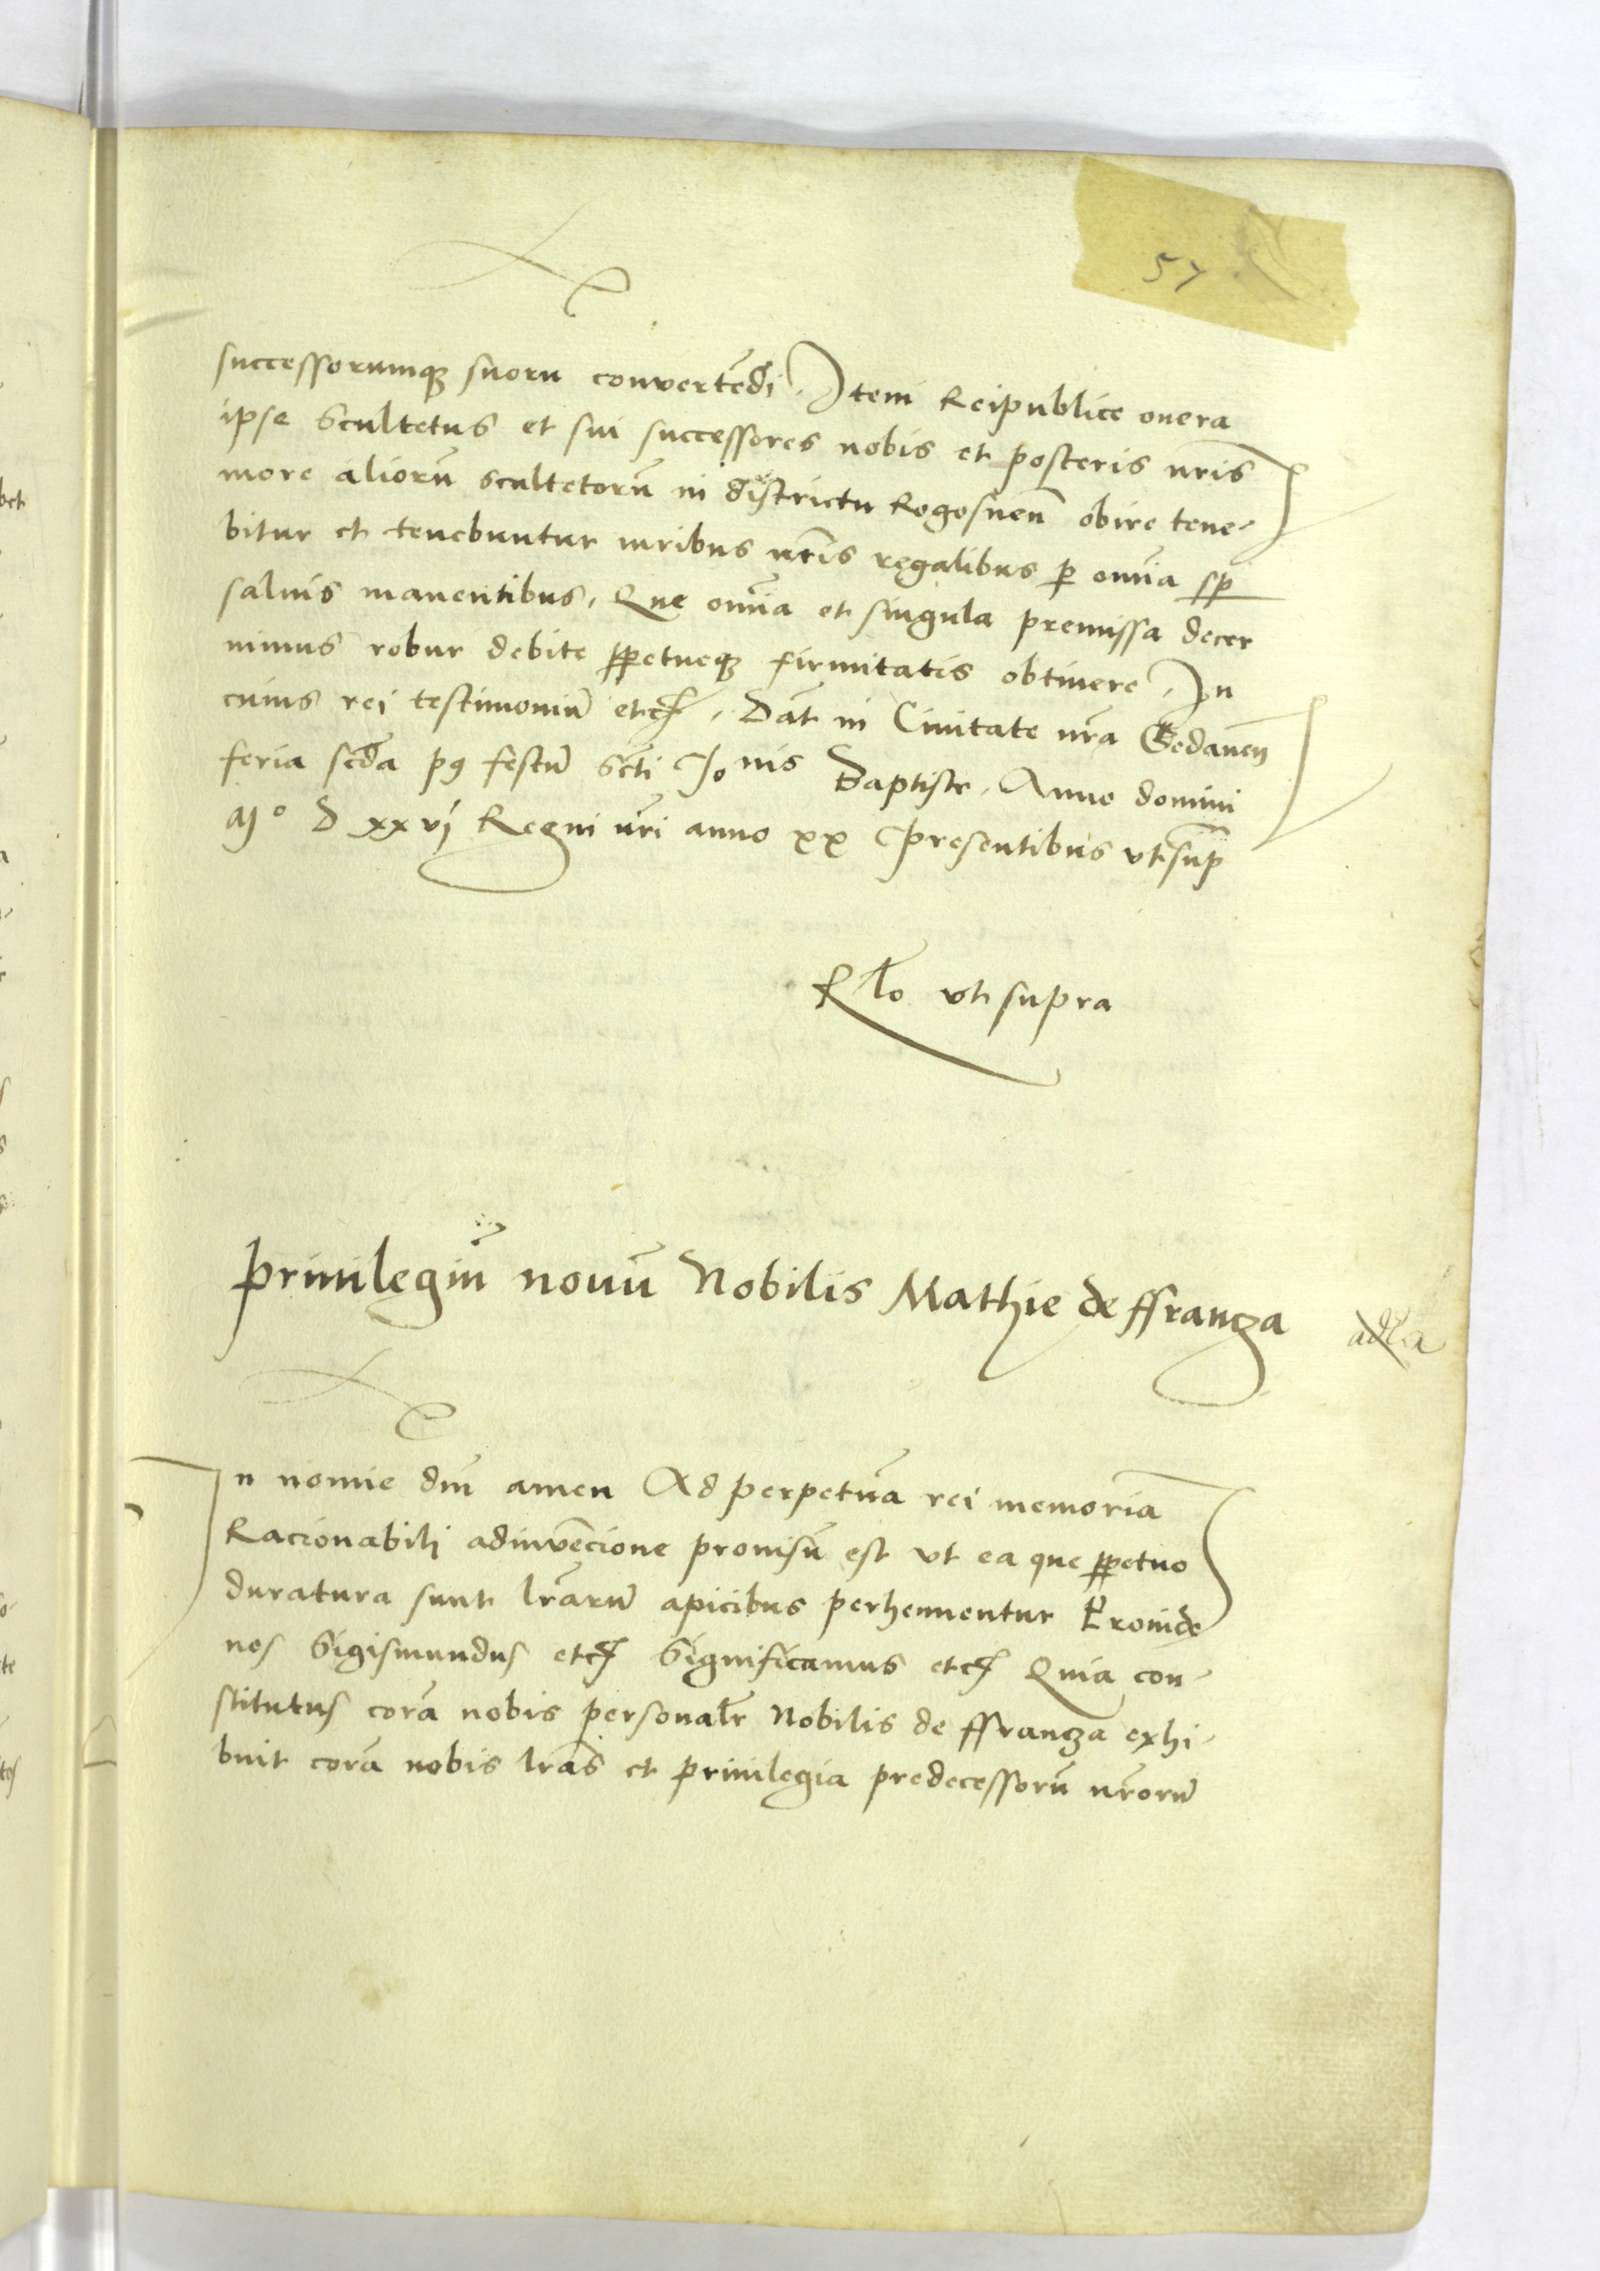 57
successorumqꝫ suoru convertēdi. Item Reipublice onera
ipse Scultetus et sui successores nobis et posteris nrīs
more aliorū scultetorū in districtu Rogosnen̄ obire tene-
bitur et tenebuntur iuribus nrīs regalibus ꝑ omīa sꝑ
saluis manentibus. Que omīa et singula premissa decer
nimus robur debite ꝑpetueqꝫ firmitatis obtinere. In
cuius rei testimoniū etcꝭ. Dat̄ in Ciuitate nrā Gedanen̄
feria scd̄a pꝰ festū Scti Joīnis Baptiste. Anno domini
Mº D xxvj Regni nrī anno xx presentibus vt supˉ
Rlo vt supra
Priuilegiū nouū Nobilis Mathie de ffranza
In nomīe dnī amen Ad perpetuā rei memoriā
Racionabili adinvēcione prouisū est vt ea que ꝑpetuo
duratura sunt lrārū apicibus perhennentur Proinde
nos Sigismundus etcꝭ Significamus etcꝭ Quia con-
stitutus corā nobis personalr̄ Nobilis de ffranza exhi-
buit corā nobis lrās et priuilegia predecessorū nrōrū